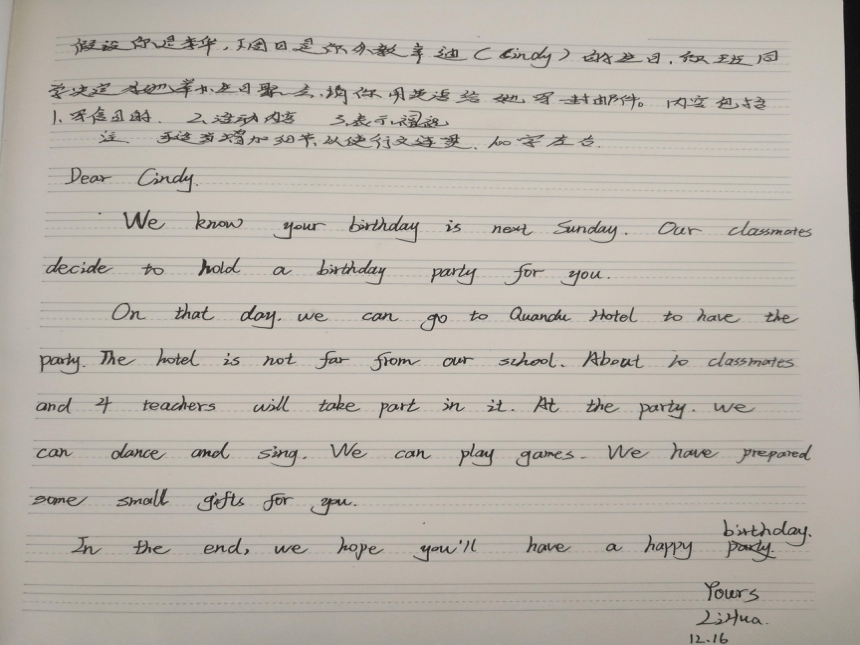 假设你是李华,下周日是你外教辛迪(Cindy)的生日,你班同
学决定为她举办生日聚会,请你用英语给她写一封邮件。内容包括
1.写信目的. 2.活动内容 3.表示祝福
注 可适当增加细节,以使行文连贯. 100字左右.
Dear Cindy.
We know your birthday is next Sunday. Our classmates
decide to hold a birthday party for you.
On that day. we can go to Quandu Hotel to have the
party. The hotel is not far from our school. About 10 classmates
and 4 teachers will take part in it. At the party. we
can dance and sing. We can play games. We have prepared
some small gifts for you.
birthday.
In the end, we hope you'll have a happy party.
Yours
LiHua.
12.16